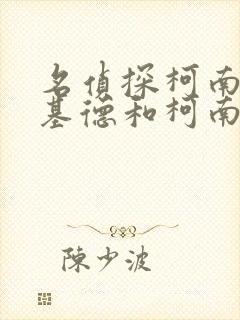 名偵探柯南
基德和柯南
陳少波